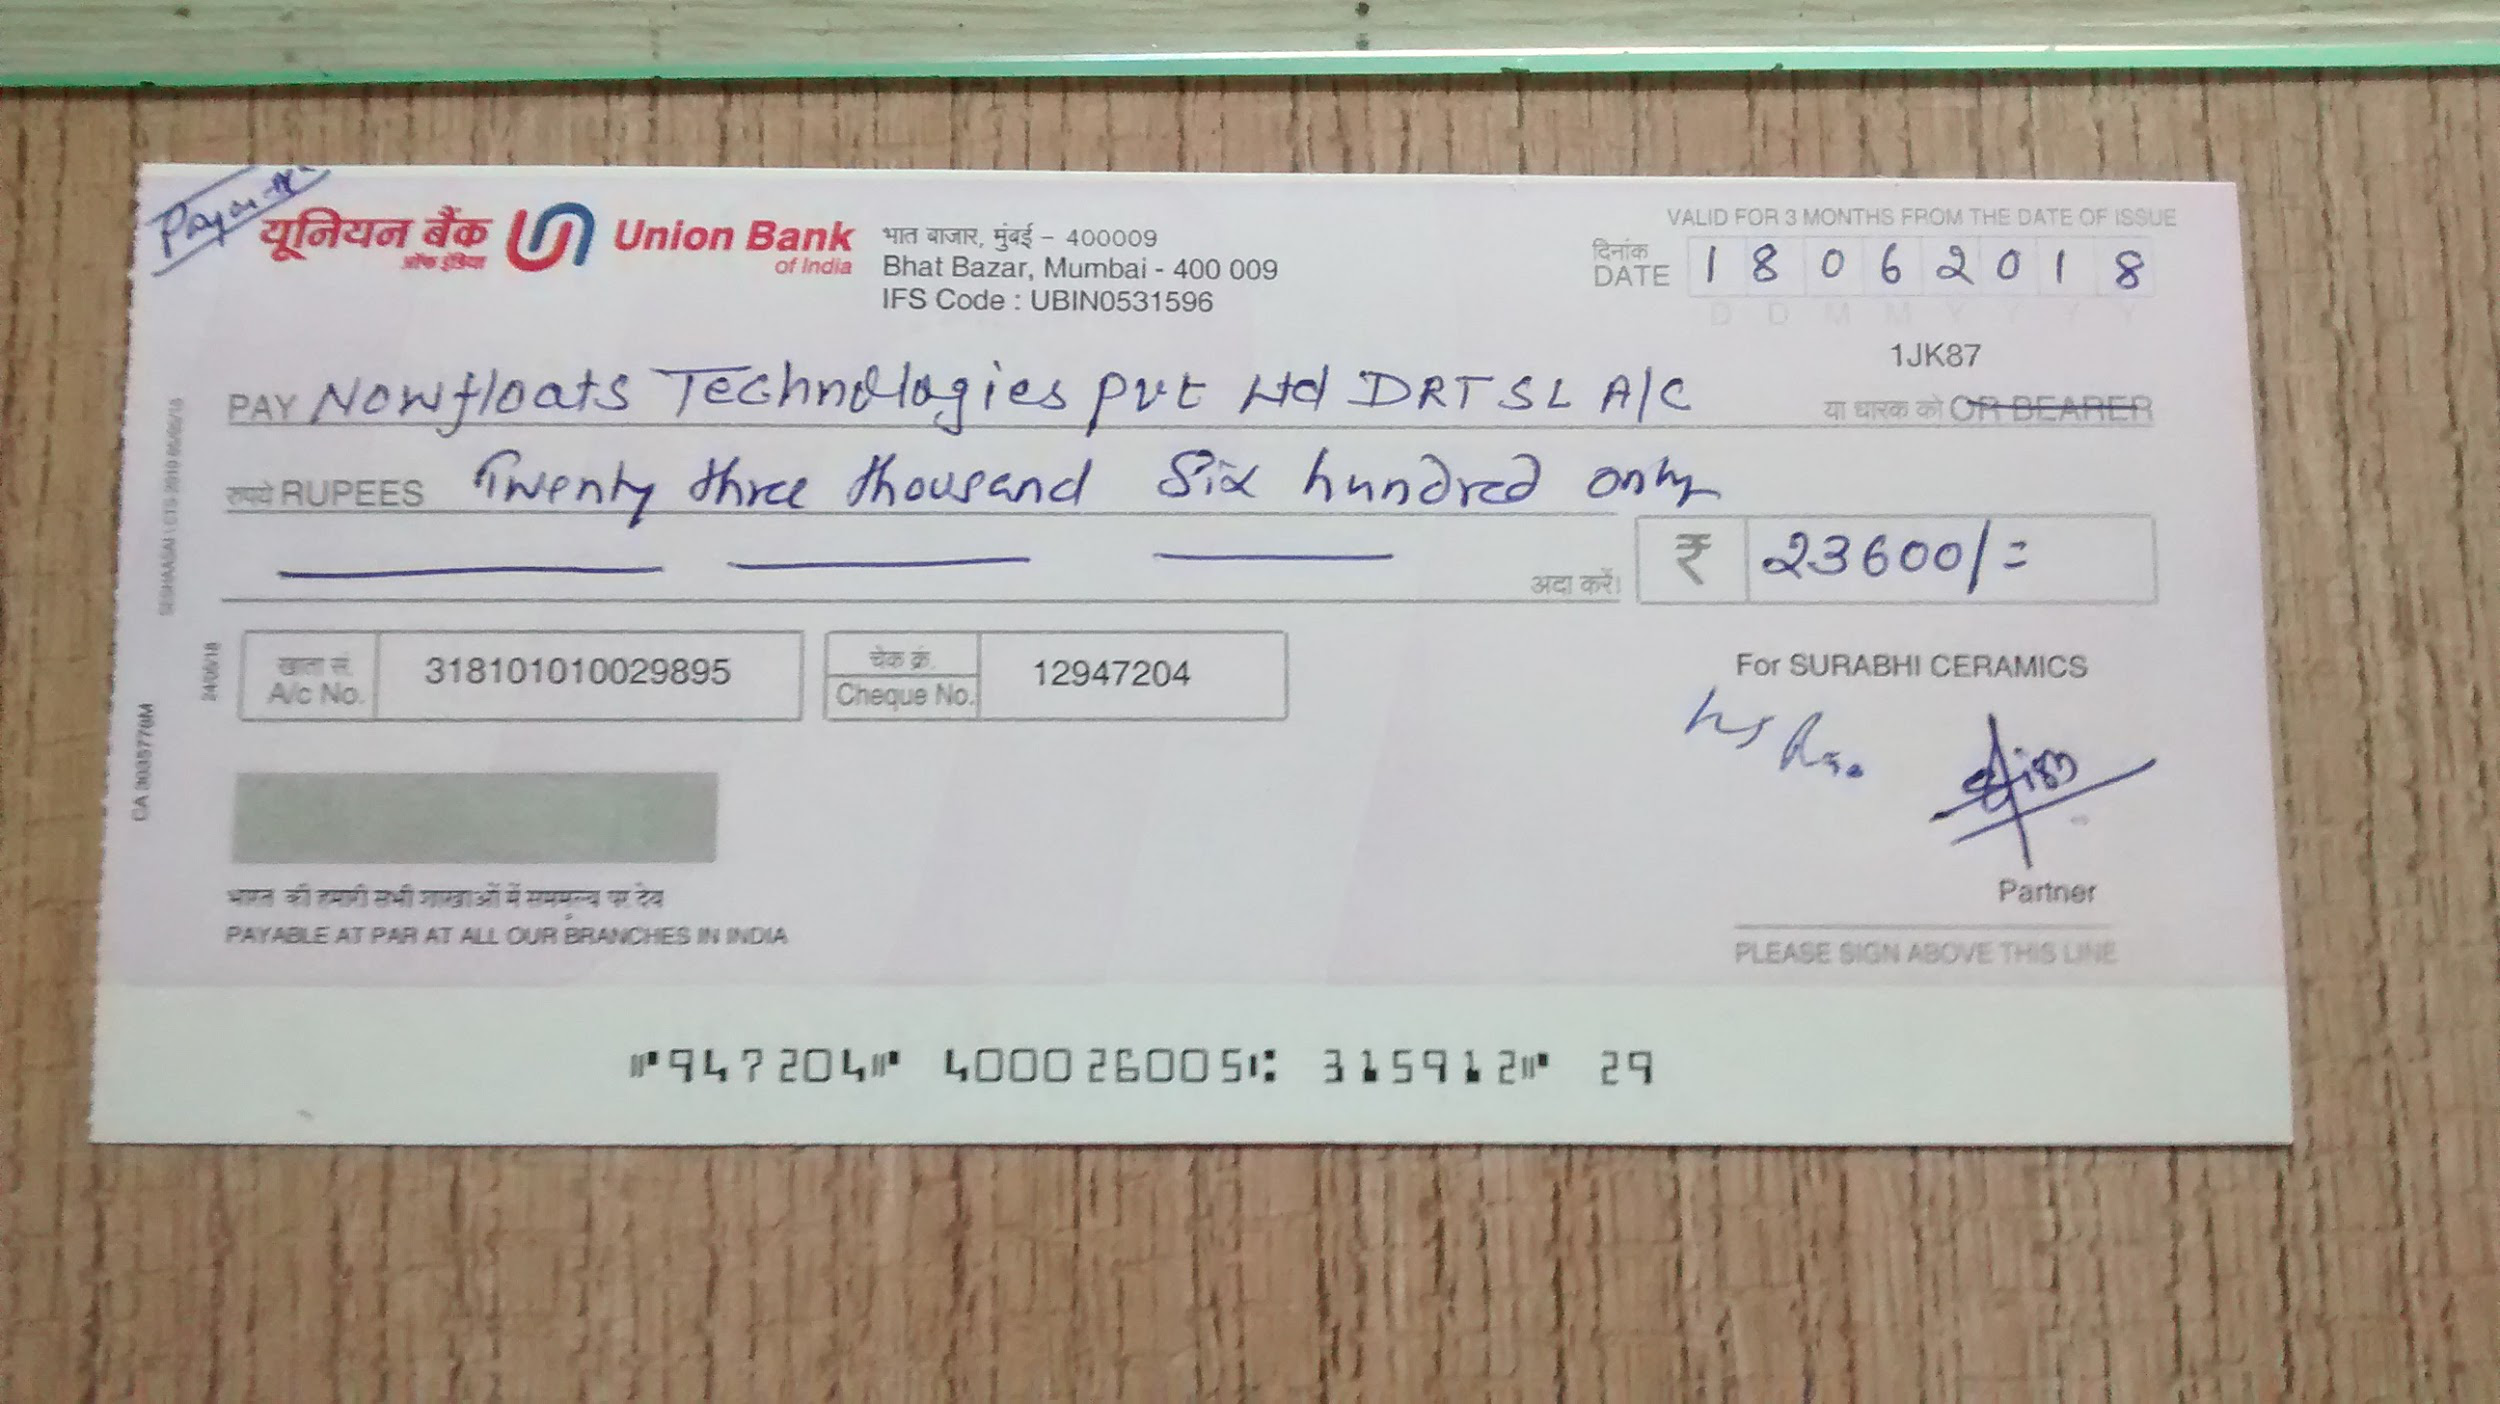 यूनियन बैंक
ऑफ इंडिया
Union Bank
of India
भात बाजार, मुंबई - 400009
Bhat Bazar, Mumbai - 400 009
IFS Code : UBIN0531596
VALID FOR 3 MONTHS FROM THE DATE OF ISSUE
दिनांक
DATE 18062018
D D M M Y Y Y Y
1JK87
PAY Nowfloats Technologies Pvt Ltd DRTSL A/C या धारक को OR BEARER
रुपये RUPEES Twenty three thousand Six hundred only
अदा करें।
₹ 23600/=
खाता सं.
A/c No.
318101010029895
चेक क्रं.
Cheque No.
12947204
For SURABHI CERAMICS
Partner
PLEASE SIGN ABOVE THIS LINE
भारत की हमारी सभी शाखाओं में सममूल्य पर देय
PAYABLE AT PAR AT ALL OUR BRANCHES IN INDIA
⑈947204⑈ 400026005⑆ 315912⑈ 29